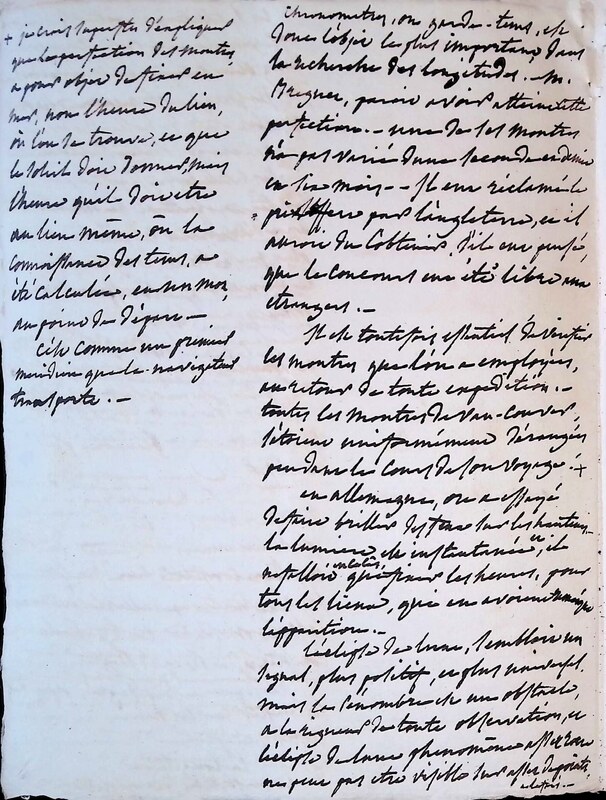 + je crois superflu d'expliquer
que la perfection des montres
a pour objet de fixer en
mer, non l'heure du lieu,
où l'on se trouve, et que
le soleil doit donner, mais
l'heure qu'il doit être
au lieu même, où la
connoissance des tems, a
été calculée, ou en un mot,
au point de départ —
C'est comme un premier
méridien que le navigateur
transporte. —
chronometres, ou garde-tems, est
donc l'objet le plus important dans
la recherche des longitudes. — M.
Breguet, paroit avoir atteint cette
perfection. — une de ses montres
n'a pas varié d'une seconde et demie
en six mois — Il eut réclamé le
prix offert par l'angleterre, et il
auroit du l'obtenir, s'il eut pensé,
que le concours eut été libre aux
étrangers. —
Il est toutefois essentiel de vérifier
les montres que l'on a employées,
au retour de toute expédition. —
toutes les montres de Van-Couver,
s'étoient uniformément dérangées
pendant le cours de son voyage. +
en allemagne, on a essayé
de faire briller des feux sur les hauteurs,
la lumière est instantanée, et il
ne falloit que fixer les heures, pour
tous les lieux, qui en avoient
l'apparition. —
L'éclipse de lune, sembloit un
signal, plus positif, et plus universel.
mais la pénombre est un obstacle,
a la rigueur de toute observation, et
l'éclipse de lune phénomène assez rare
ne peut pas être visible sur assez de points